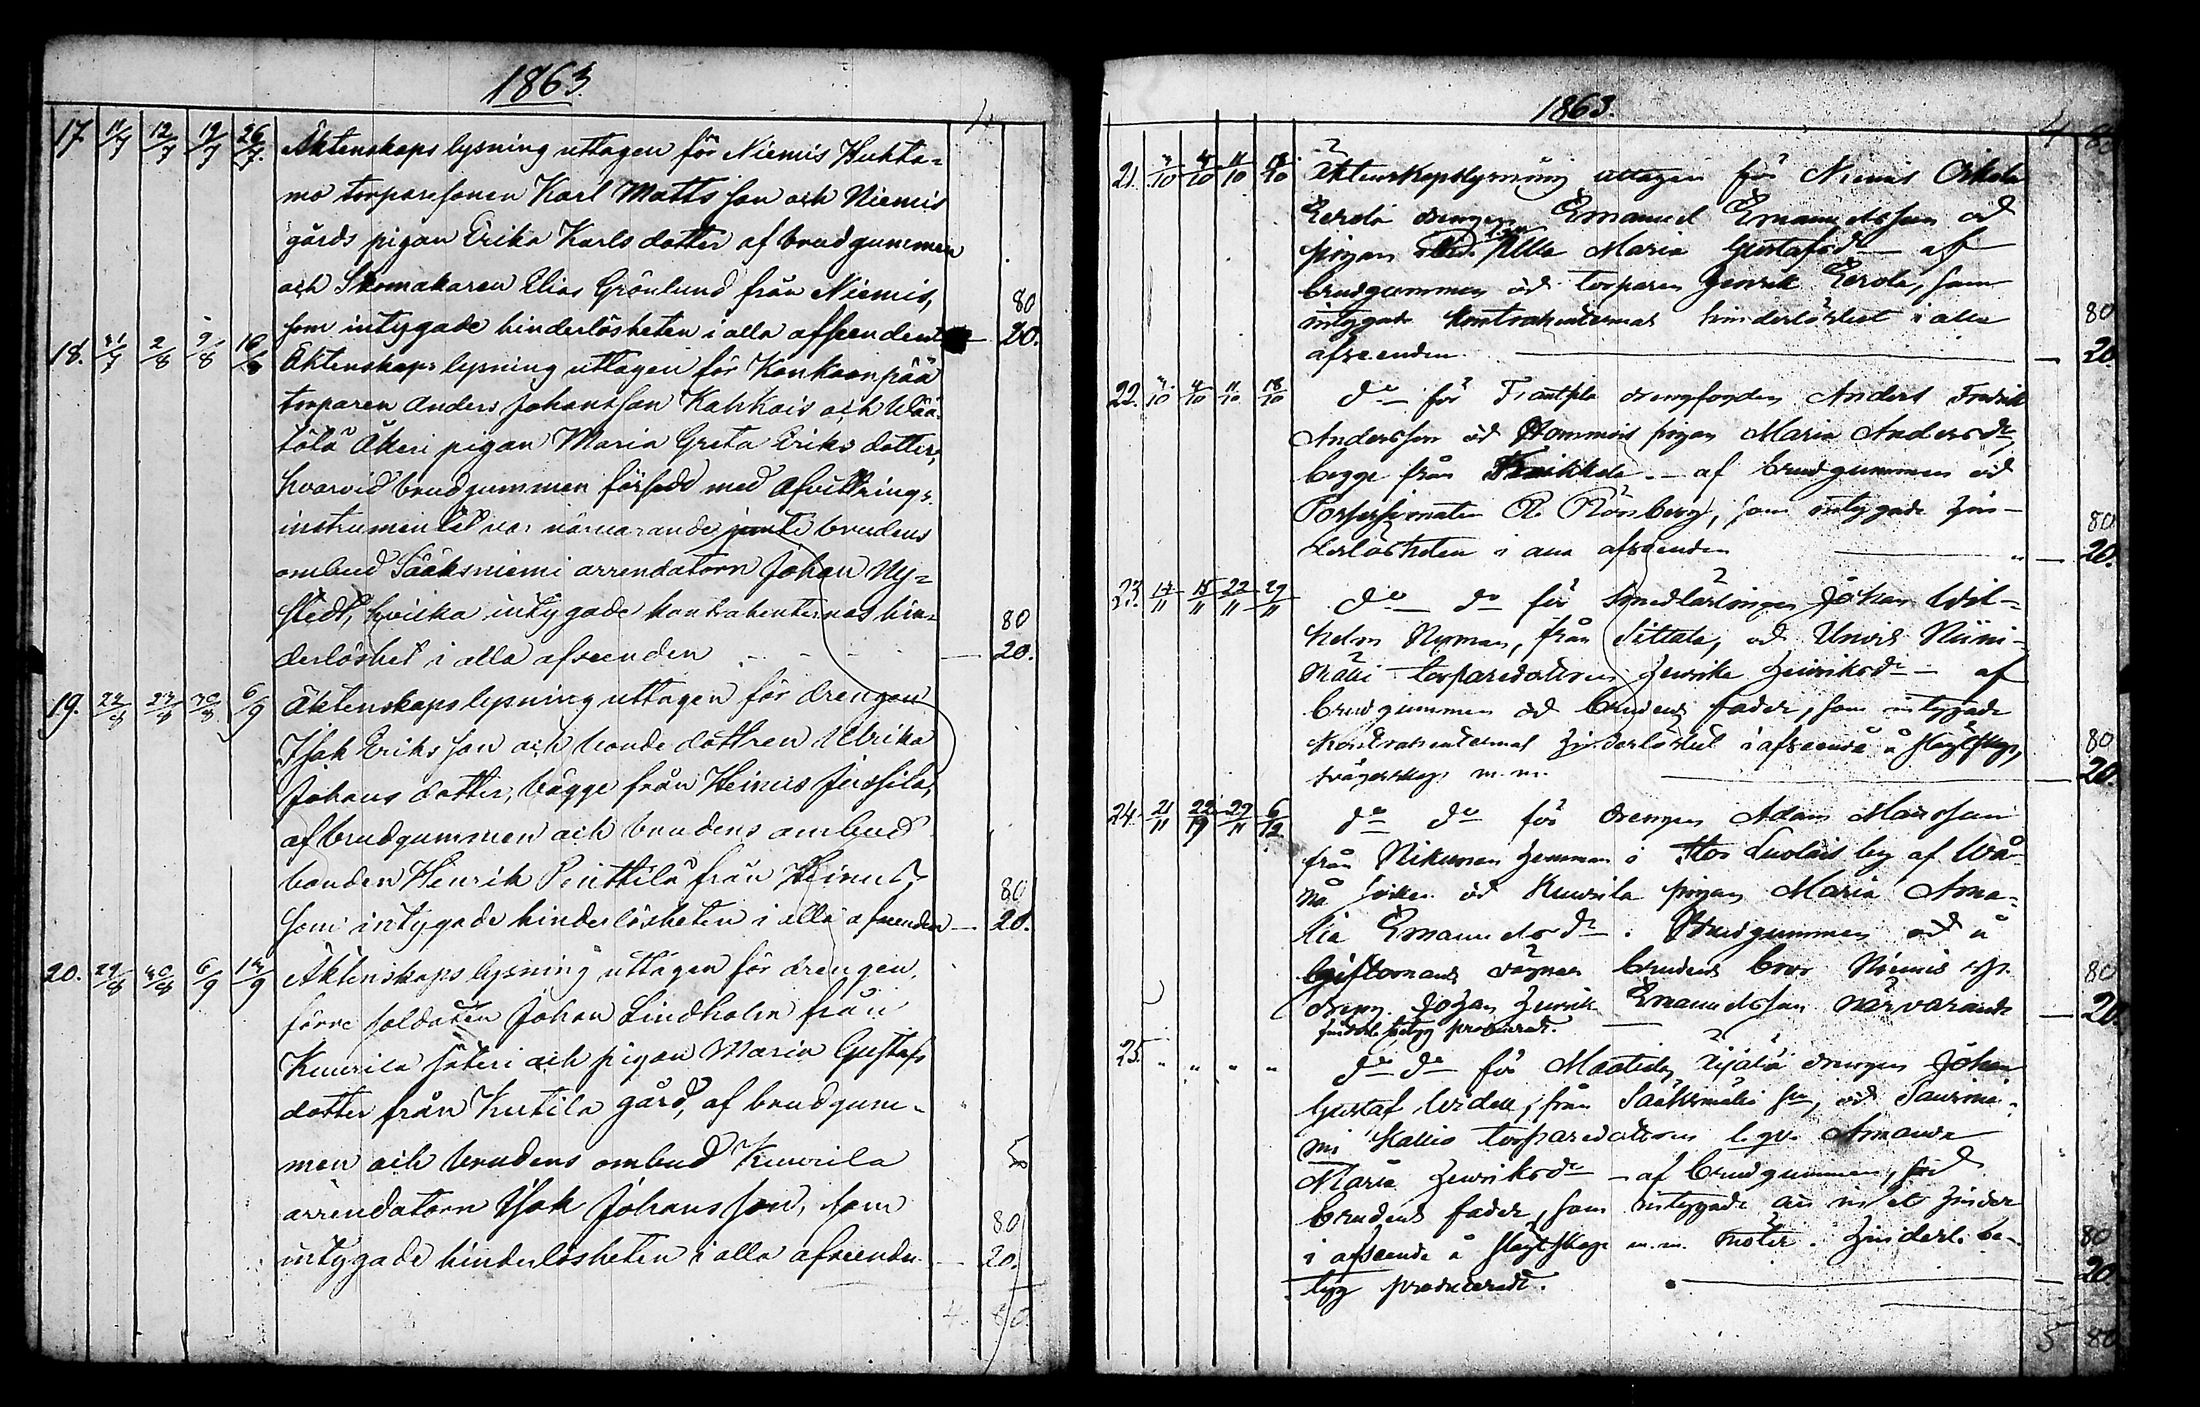 1863.
17. 11/7 12/7 19/7 26/7. Äktenskaps lysning uttagen för Niemis Huhta=
mo torparesonen Karl Matts son och Niemis
gårds pigan Erika Karls dotter af brudgummen
och Skomakaren Elias Grönlund från Niemis, 80
som intygade hinderlösheten i alla afseenden — 20.
18. 31/7 2/8 9/8 16/8 Äktenskaps lysning uttagen för Kankaanpää
torparen Anders Johansson Kahkois och
Åkeri pigan Maria Greta Eriks dotter,
hvarvid brudgummen försedd med Afvittrings=
instrumentet var närvarande jemte brudens
ombud Sääksniemi arrendatorn Johan Ny=
stedt, hvilka intygade kontrahenternas hin= 80
derlöshet i alla afseenden — 20.
19. 22/8 23/8 30/8 6/9 Äktenskaps lysning uttagen för drengen
Isak Eriks son och bonde dottren Ulrika
Johans dotter, bägge från Heinus Jussila,
af brudgummen och brudens ombud
bonden Henrik Penttilä från Heinus, 80
som intygade hinderlösheten i alla afseenden — 20.
20. 29/8 30/8 6/9 13/9 Äktenskaps lysning uttagen för drengen,
förre soldaten Johan Lindholm från
Kuurila säteri och pigan Maria Gustafs
dotter från Kutila gård, af brudgum=
men och brudens ombud Kuurila
arrendatorn Isak Johans son, som 80
intygade hinderlösheten i alla afseenden — 20.
4. 80.
1863.
4 80
21. 3/10 4/10 11/10 18/10 Äktenskapslysning uttagen för Niemis
Eerola drengen Emanuel Emanuelsson och
pigan Ulla Maria Gustafsdr — af
brudgummen och torparen Henrik Eerola, som
intygade kontrahenternas hinderlöshet i alla 80
afseenden. — 20
22. 3/10 4/10 11/10 18/10 do för drengfogden Anders Fredrik
Andersson och pigan Maria Andersdr,
begge från — af brudgummen och
Possessionaten Rönberg, som intygade hin- 80
derlösheten i alla afseenden — 20.
23. 14/11 15/11 22/11 29/11 do do för Smedlärlingen Johan Wil=
helm Nyman, från Sittala, och Unids Niini-
mäki torparedottren Henrika Henriksdr — af
brudgummen och brudens fader, som intygade
Kontrahenternas hinderlöshet i afseende å slägtskap, 80
svågerskap m.m. — 20.
24. 21/11 22/11 29/11 6/12 do do för drengen Adam Mansson
från Nikunen hemman i Stor by af Wå-
nå socken och Kuurila pigan Maria Ama=
lia Emanuelsdr. Brudgummen och å
Giftomans vägnar brudens bror Niemis 80
dreng Johan Henrik Emanuelsson närvarande — 20
hinderl. betyg producerad.
25. " " " " do do för drengen Johan
Gustaf från Sääksmäki sn, och
Kallio torparedottren Amanda
Maria Henriksdr — af brudgummen, och
brudens fader, som intygade att intet hinder
i afseende å slägtskap m.m. möter. Hinderl. be- 80
tyg producerades. — 20
5 80